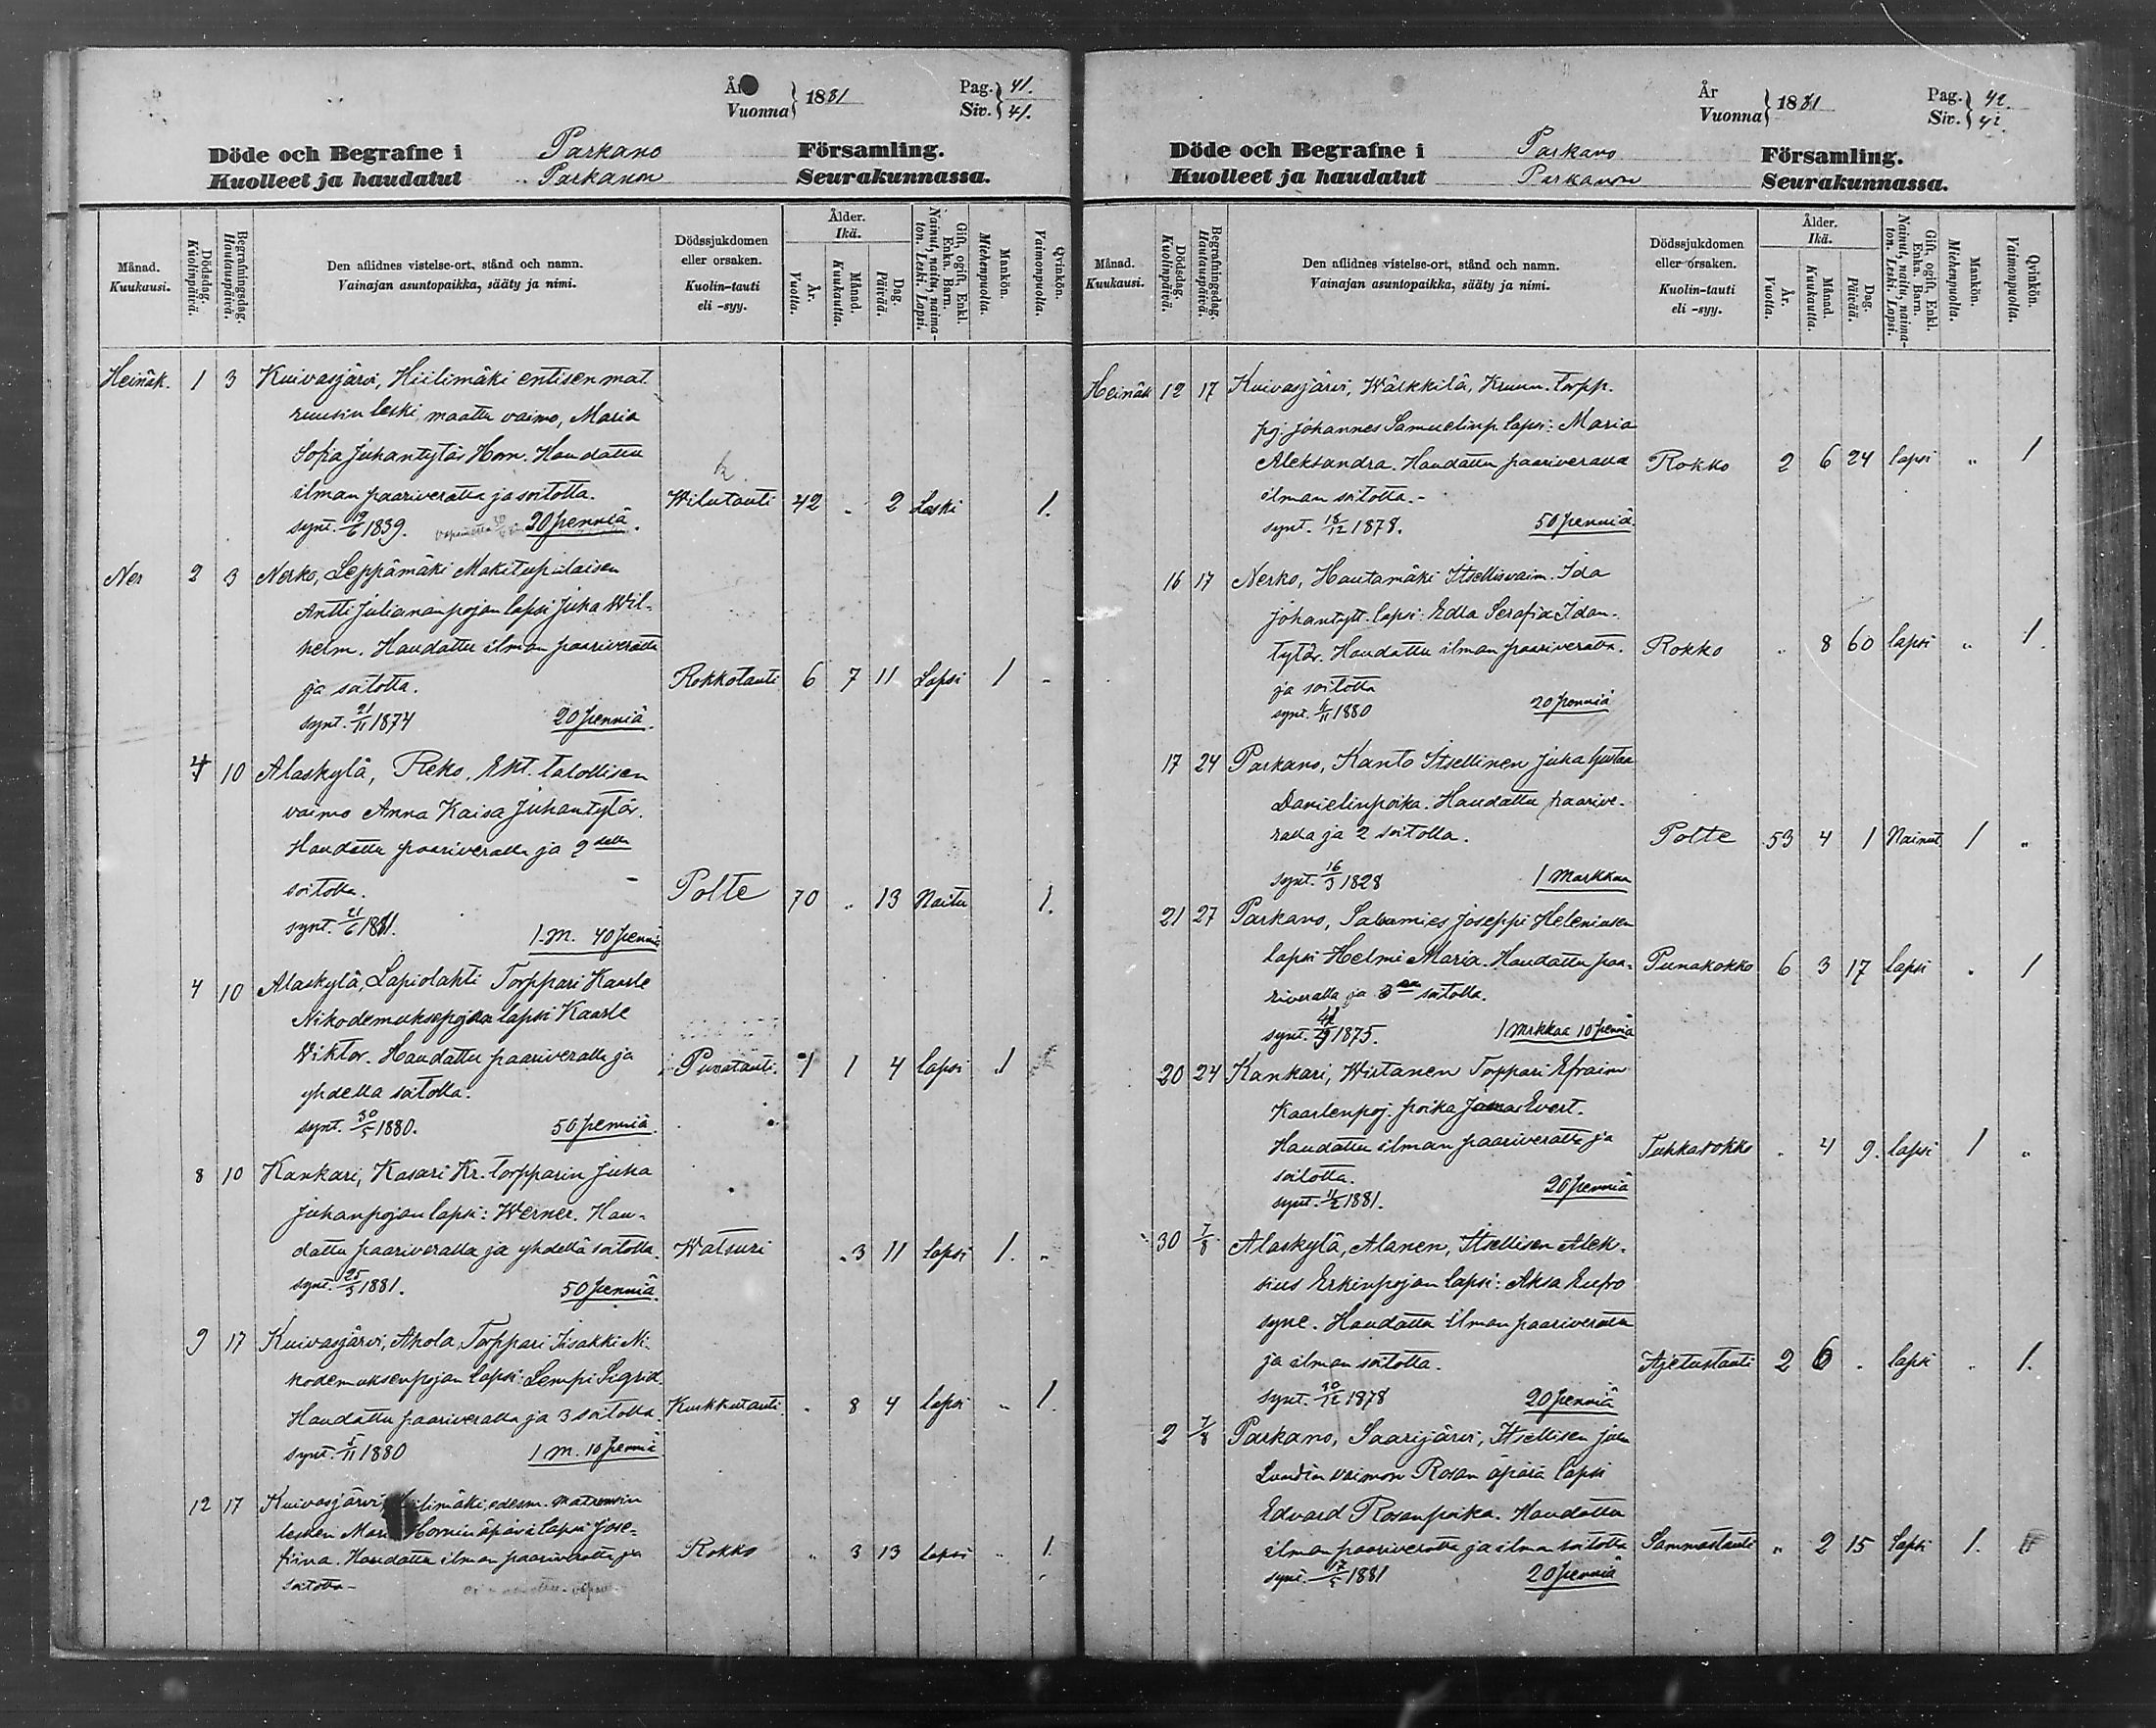 År
Vuonna } 1881
Pag. } 41.
Siv. } 41.
Döde och Begrafne i Parkano Församling.
Kuolleet ja haudatut Parkanon Seurakunnassa.
Månad. Kuukausi.
Dödsdag. Kuolinpäivä.
Begrafningsdag. Hautauspäivä.
Den aflidnes vistelse-ort, stånd och namn.
Vainajan asuntopaikka, sääty ja nimi.
Dödssjukdomen eller orsaken.
Kuolin-tauti eli -syy.
Ålder. Ikä.
År. Vuotta.
Månad. Kuukautta.
Dag. Päivää.
Gift, ogift, Enkl. Enka. Barn.
Nainut, naitu, naimaton. Leski. Lapsi.
Mankön. Miehenpuolta.
Qvinkön. Vaimonpuolta.
Heinäk. 1 3 Kuivasjärvi, Hiilimäki entisen mat
ruusin leski maattu vaimo, Maria
Sofia Juhantytär Horn. Haudattu
ilman paariveratta ja soitotta. Wilutauti 42 „ 2 Leski 1.
synt. 19/6 1839. 20 penniä.
Ner 2 3 Nerko, Leppämäki Mäkitupalaisen
Antti Juliananpojan lapsi Juha Wil-
helm. Haudattu ilman paariveratta
ja soitotta. Rokkotauti 6 7 11 Lapsi 1 -
synt. 21/11 1874 20 penniä.
4 10 Alaskylä, Reko, Ent. talollisen
vaimo Anna Kaisa Juhantytär.
Haudattu paariveralla ja 2della
soitolla. Polte 70 „ 13 Naitu 1.
synt. 21/6 1811. 1. M. 40 penniä
4 10 Alaskylä, Lapiolahti Torppari Kaarle
Nikodemuksepojan lapsi Kaarle
Viktor. Haudattu paariveralla ja Punatauti. 1 1 4 lapsi 1
yhdellä soitolla.
synt. 30/5 1880. 50 penniä.
8 10 Kankari, Kasari Kr. torpparin Juha
Juhanpojan lapsi: Werner. Hau-
dattu paariveralla ja yhdellä soitolla. Watsuri „ 3 11 lapsi 1. „
synt. 25/3 1881. 50 penniä.
9 17 Kuivasjärvi, Ahola, Torppari Iisakki Ni-
kodemuksenpojan lapsi: Lempi Sigrid.
Haudattu paariveralla ja 3 soitolla. Kurkkutauti. „ 8 4 lapsi „ 1.
synt. 5/11 1880 1 M. 10 penniä
12 17 Kuivasjärvi, Hiilimäki, edesm. matruusin
lesken Maria Hornin äpärä lapsi Jose-
fiina. Haudattu ilman paariveratta ja Rokko „ 3 13 lapsi „ 1.
soitotta -
År
Vuonna } 1881
Pag. } 42.
Siv. } 42.
Döde och Begrafne i Parkano Församling.
Kuolleet ja haudatut Parkanon Seurakunnassa.
Månad. Kuukausi.
Dödsdag. Kuolinpäivä.
Begrafningsdag. Hautauspäivä.
Den aflidnes vistelse-ort, stånd och namn.
Vainajan asuntopaikka, sääty ja nimi.
Dödssjukdomen eller orsaken.
Kuolin-tauti eli -syy.
Ålder. Ikä.
År. Vuotta.
Månad. Kuukautta.
Dag. Päivää.
Gift, ogift, Enkl. Enka. Barn.
Nainut, naitu, naimaton. Leski. Lapsi.
Mankön. Miehenpuolta.
Qvinkön. Vaimonpuolta.
Heinäk 12 17 Kuivasjärvi, Wälkkilä, Kruun. torpp.
poj. Johannes Samuelinp. lapsi: Maria
Aleksandra. Haudattu paariveralla Rokko 2 6 24 lapsi „ 1
ilman soitotta. -
synt. 18/12 1878. 50 penniä.
16 17 Nerko, Hautamäki Itsellisvaim. Ida
Johantytt. lapsi: Edla Serafia Idan-
tytär. Haudattu ilman paariveratta. Rokko „ 8 60 lapsi „ 1.
ja soitotta
synt. 6/11 1880 20 penniä
17 24 Parkano, Kanto Itsellinen Juha Kustaa
Danielinpoika. Haudattu paarive-
ralla ja 2 soitolla. Polte 53 4 1 Nainut 1 „
synt. 16/3 1828 1 Markkaa
21 27 Parkano, Salaumies Joseppi Heleniusen
lapsi Helmi Maria. Haudattu paa- Punakokko 6 3 17 lapsi „ 1
riveralla ja 3 soitolla.
synt. 1875. 1 Markkaa 10 penniä
20 24 Kankari, Wirtanen Torppari Efraim
Kaarlenpoj. poika Jomas Evert.
Haudattu ilman paariveratta ja Tuhkarokko „ 4 9. lapsi 1 „
soitotta.
synt. 11/2 1881. 20 penniä
30 7/8 Alaskylä, Alanen, Itsellisen Alek-
sius Erkinpojan lapsi: Aksa Eufro
syne. Haudattu ilman paariveratta
ja ilman soitotta. Ajetustauti 2 6 „ lapsi „ 1.
synt. 30/12 1878 20 penniä
2 7/8 Parkano, Saarijärvi, Itsellisen Juha
Lundin vaimon Rosan äpärä lapsi
Edvard Rosanpoika. Haudattu
ilman paariveratta ja ilman soitotta Sammastauti „ 2 15 lapsi 1.
synt. 17/5 1881 20 penniä